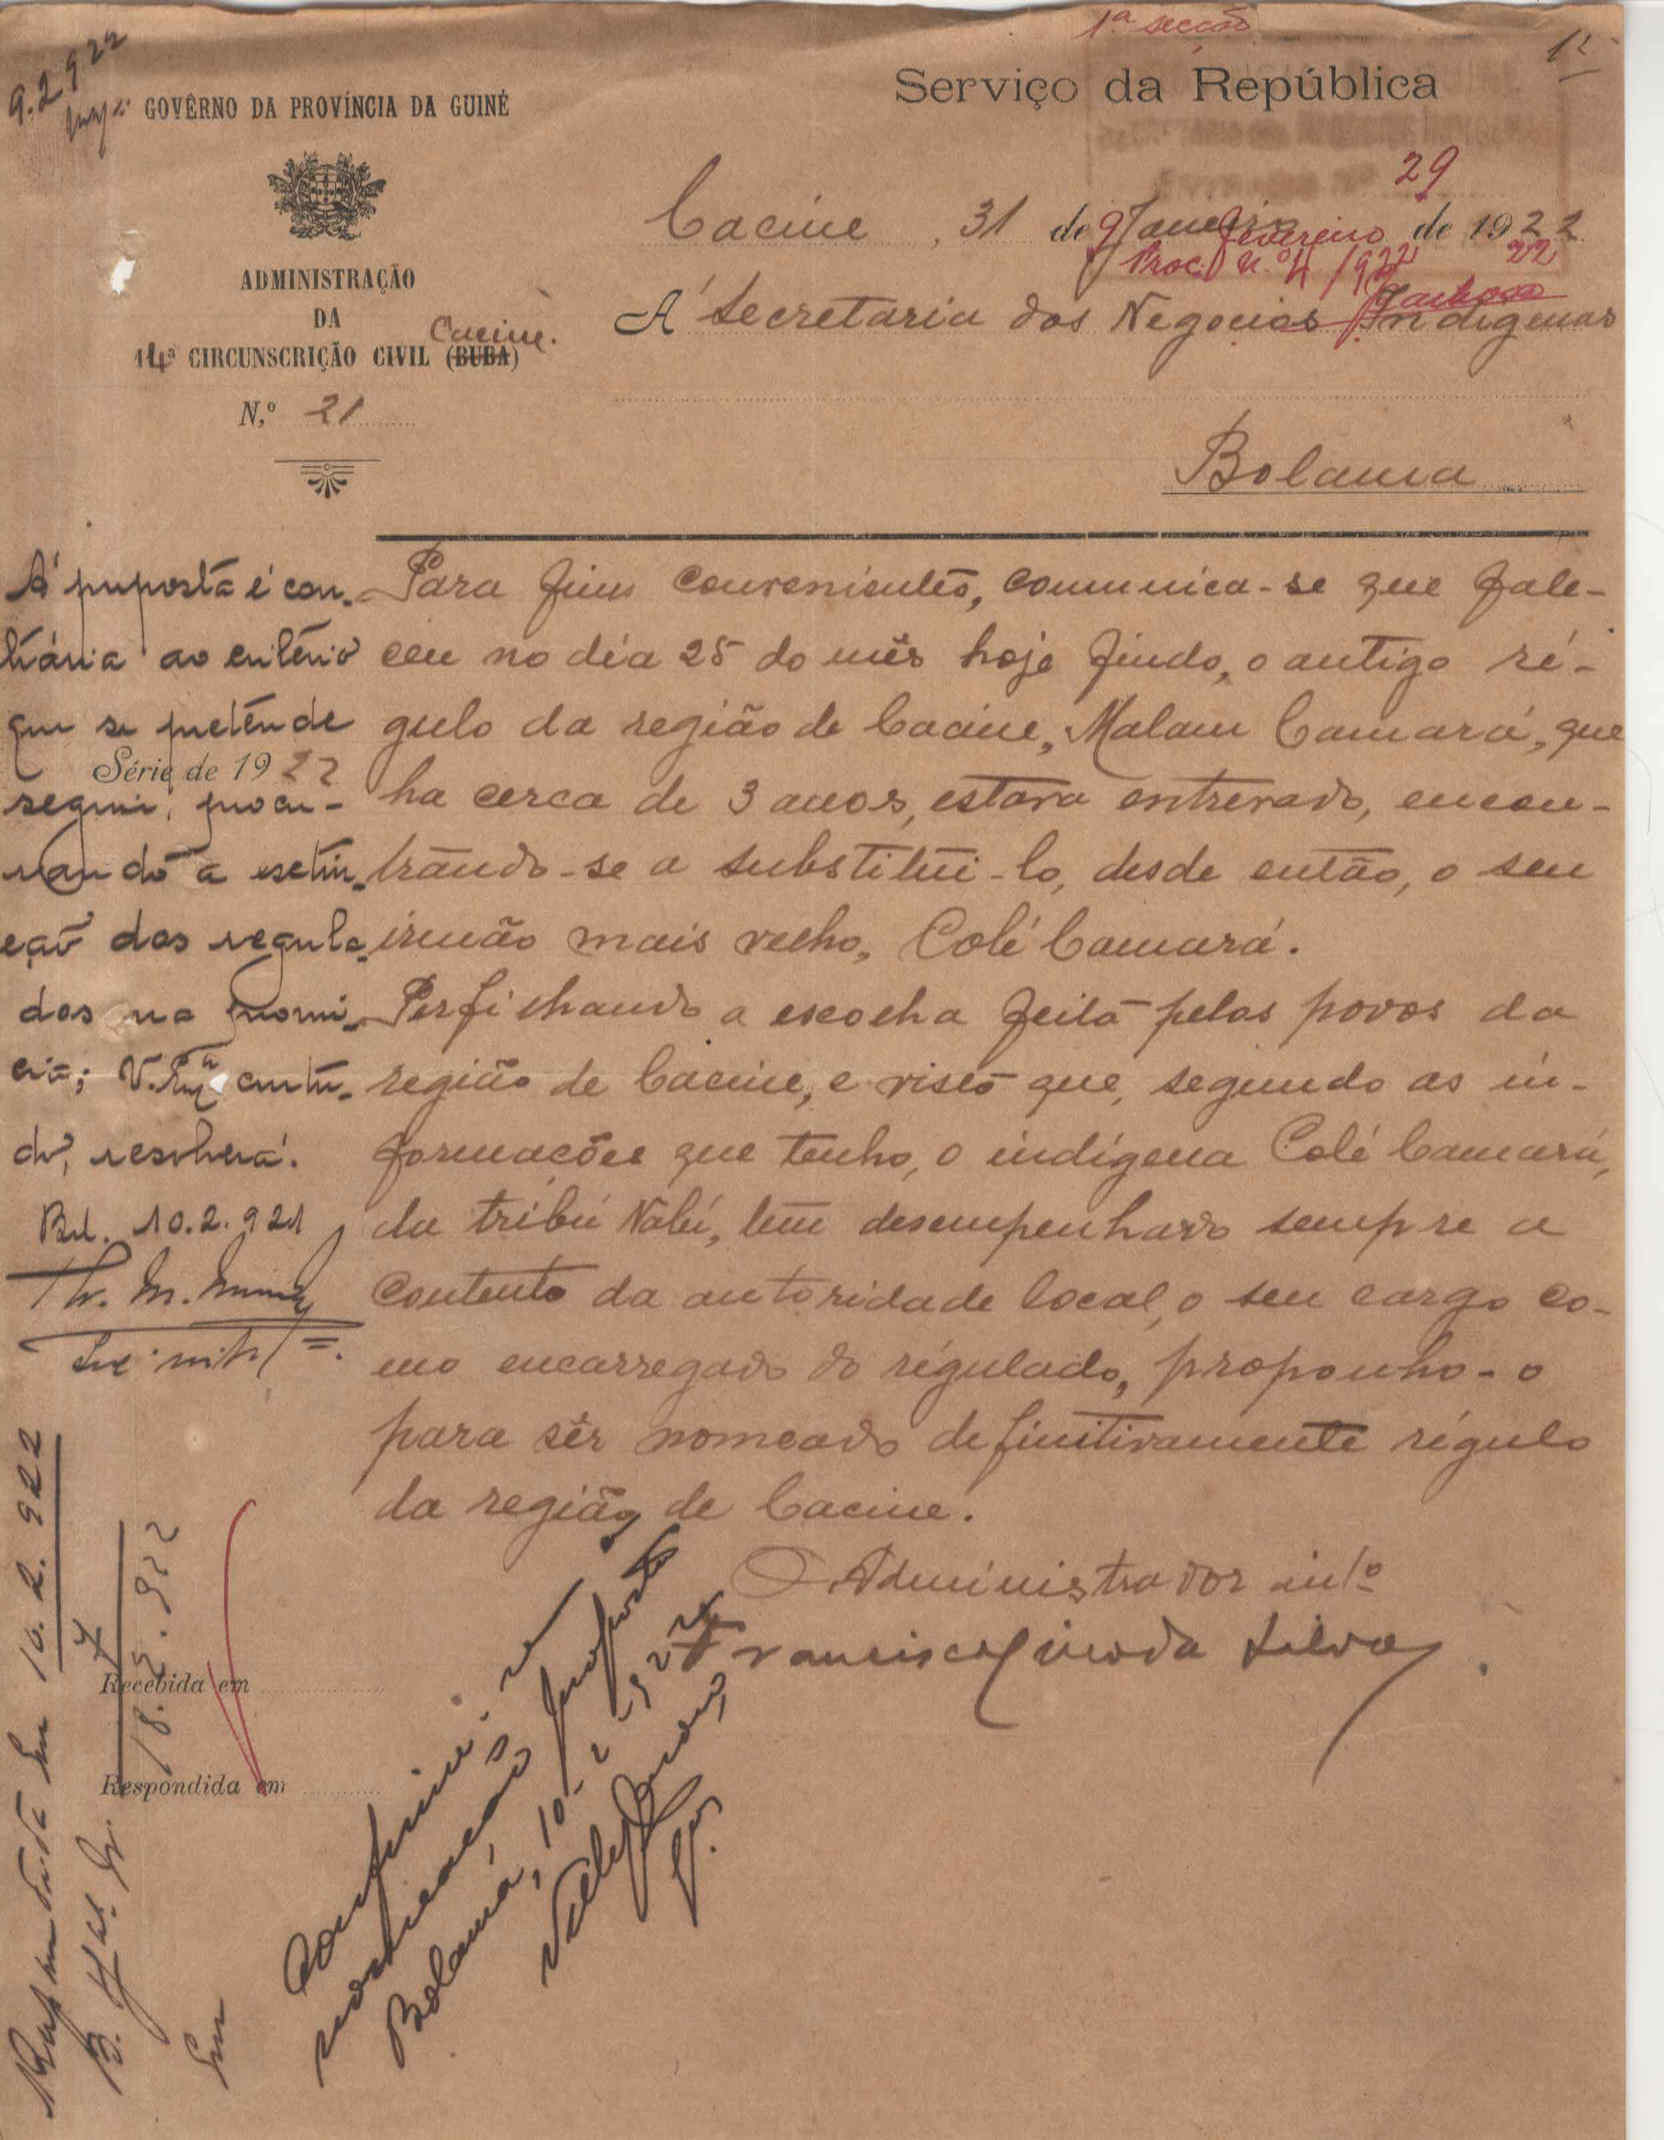 1ª secção
12
9.2.922
GOVÊRNO DA PROVÍNCIA DA GUINÉ
Serviço da República
ADMINISTRAÇÃO
DA
14ª CIRCUNSCRIÇÃO CIVIL (BUBA)
Cacine.
N.º 21
29
Cacine, 31 de Janeiro de 1922
9 Fevereiro 22
Proc. N.º 4/922
Á Secretaria dos Negocios Indigenas
Bolama
Para fins convenientes, comunica-se que fale-
ceu no dia 25 do mês hoje findo, o antigo ré-
gulo da região de Cacine, Malam Camará, que
ha cerca de 3 anos, estava entrevado, encon-
trando-se a substitui-lo, desde então, o seu
irmão mais velho, Colé Camará.
Perfilhando a escolha feita pelos povos da
região de Cacine, e visto que, segundo as in-
formações que tenho, o indígena Colé Camará,
da tribú Nalú, tem desempenhado sempre a
contento da autoridade local, o seu cargo co-
mo encarregado do régulado, proponho-o
para sêr nomeado definitivamente régulo
da região de Cacine.
O Administrador intº
Francisco da Silva
A' proposta é con-
trária ao critério
que se pretende
Série de 1922
seguir, procu-
rando a extin-
ção dos regula-
dos na provin-
cia; V. Exª contu-
do, resolverá.
Bol. 10.2.921
Recebida em
Respondida em
10.2.922
18.5.922
Em
Confirme-se a
nomeação proposta
Bolama, 10-2-922